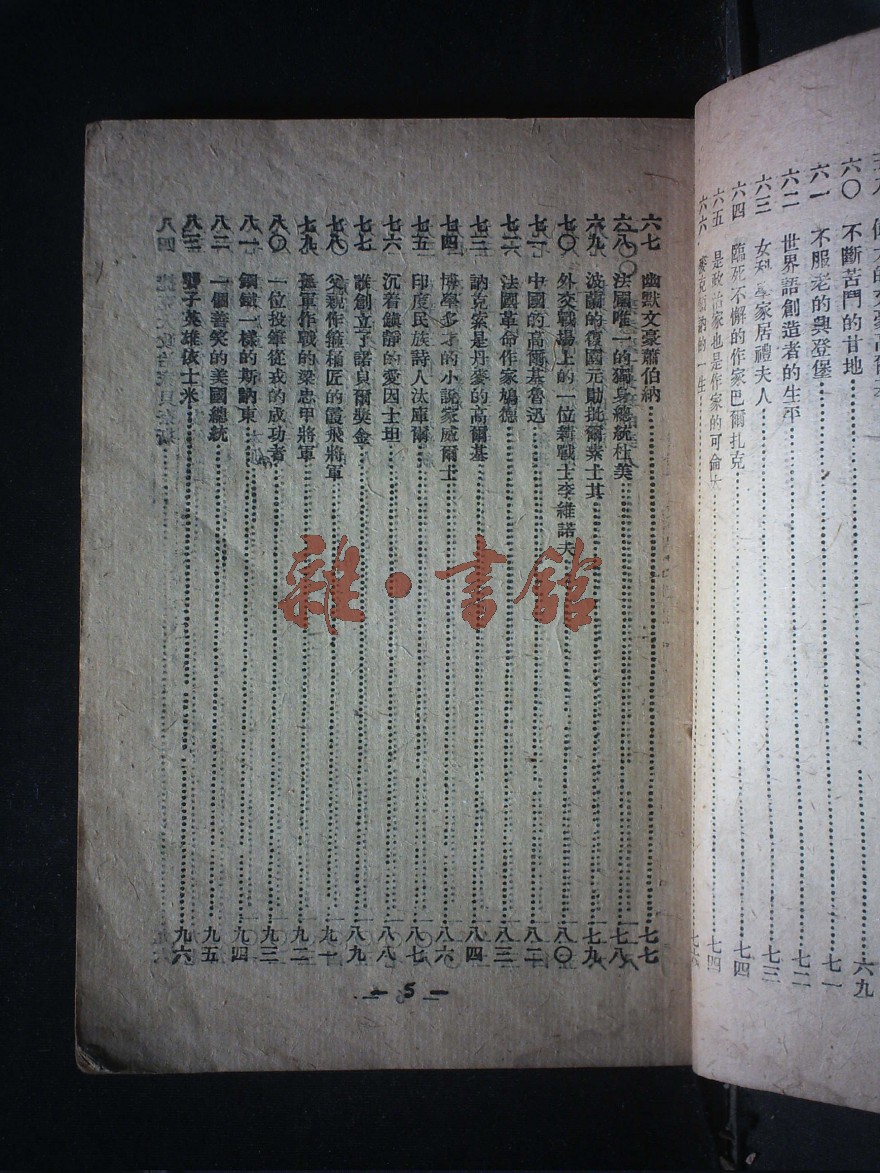 六〇 不斷苦鬥的甘地 六九
六一 不服老的興登堡 七一
六二 世界語創造者的生平 七二
六三 女科學家居禮夫人 七三
六四 臨死不懈的作家巴爾扎克 七四
六五 是政治家也是作家的可倫 七四
六六 的一生 七六
六七 幽默文豪蕭伯納 七七
六八 法國唯一的獨身總統杜美 七八
六九 波蘭的復國元勛 七九
七〇 外交戰場上的一位新戰士李維諾夫 八〇
七一 中國的高爾基魯迅 八二
七二 法國革命作家鳩德 八三
七三 訥克索是丹麥的高爾基 八四
七四 博學多才的小說家威爾士 八六
七五 印度民族詩人汰庫爾 八七
七六 沉着鎮靜的愛因士坦 八八
七七 誰創立了諾貝爾獎金 八九
七八 父親作箍桶匠的霞飛將軍 九十
七九 孤軍作戰的梁忠甲將軍 九二
八〇 一位投筆從戎的成功者 九三
八一 鋼鐵一樣的斯訥東 九四
八二 一個善笑的美國總統 九五
八三 聾子英雄該士米 九六
八四
— 5 —
雜·書館